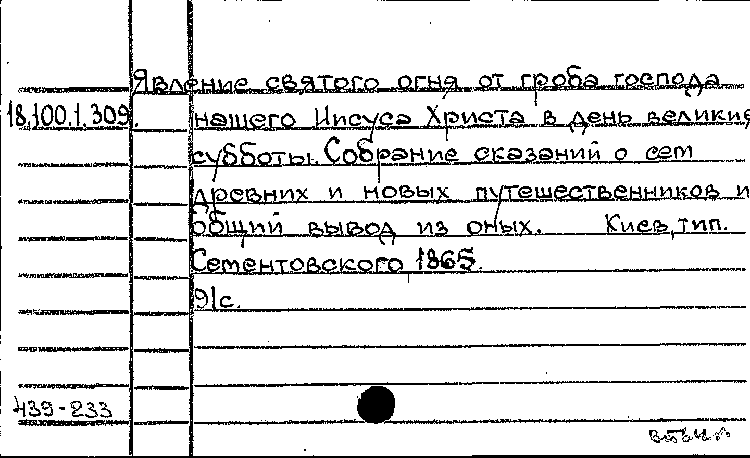 Явление святого огня от гроба господа
18.100.1.309. нашего Иисуса Христа в день великия
субботы. Собрание сказаний о сем
древних и новых путешественников и
общий вывод из оных. Киев, тип.
Сементовского 1865.
91с.
439-233